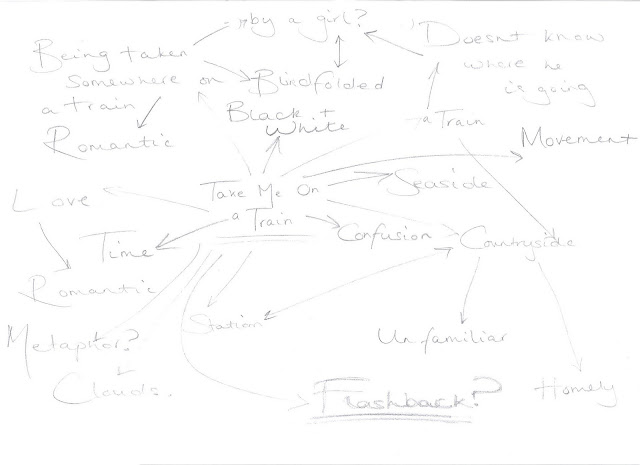 by a girl?
Being taken
Somewhere on
a train
Blindfolded
Doesnt know
where he
is going
Black +
White
a Train
Romantic
Movement
Take Me On
a Train
Seaside
Love
Confusion
Countryside
Time
Romantic
Station
Metaphor?
Unfamiliar
Clouds.
Flashback?
Homely